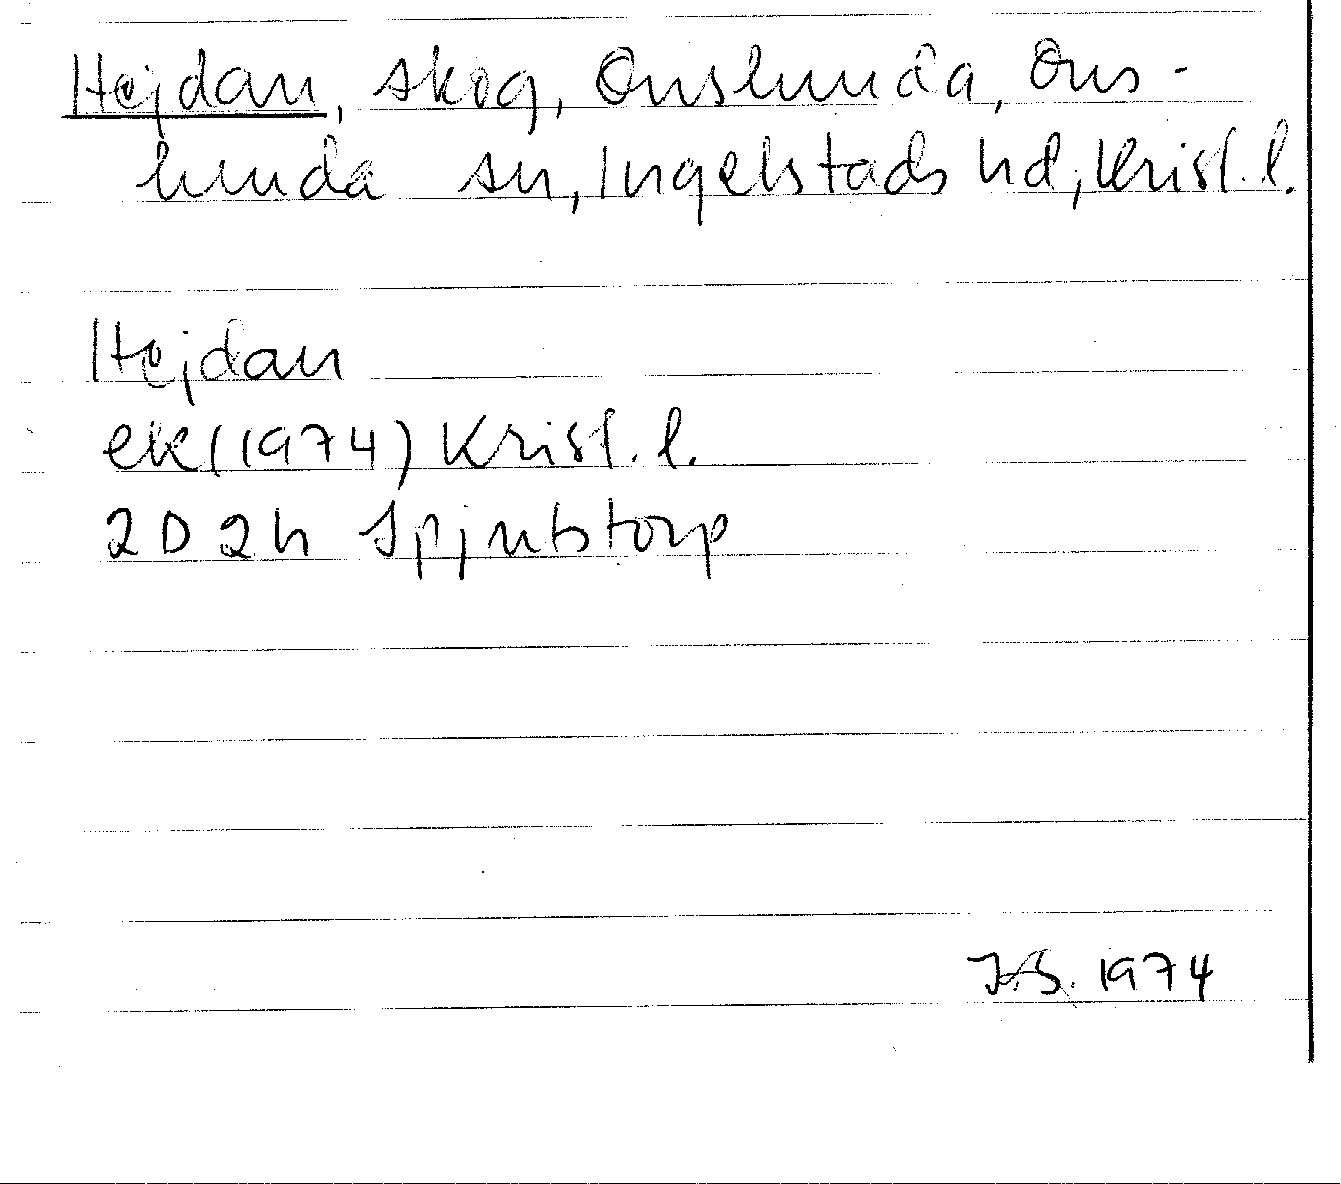 Hejdan, skog, Onslunda, Ons-
lunda sn, Ingelstads hd, Krist. l.
Hejdan
ek (1974) Krist. l.
2D 2h Spjutstorp
1974